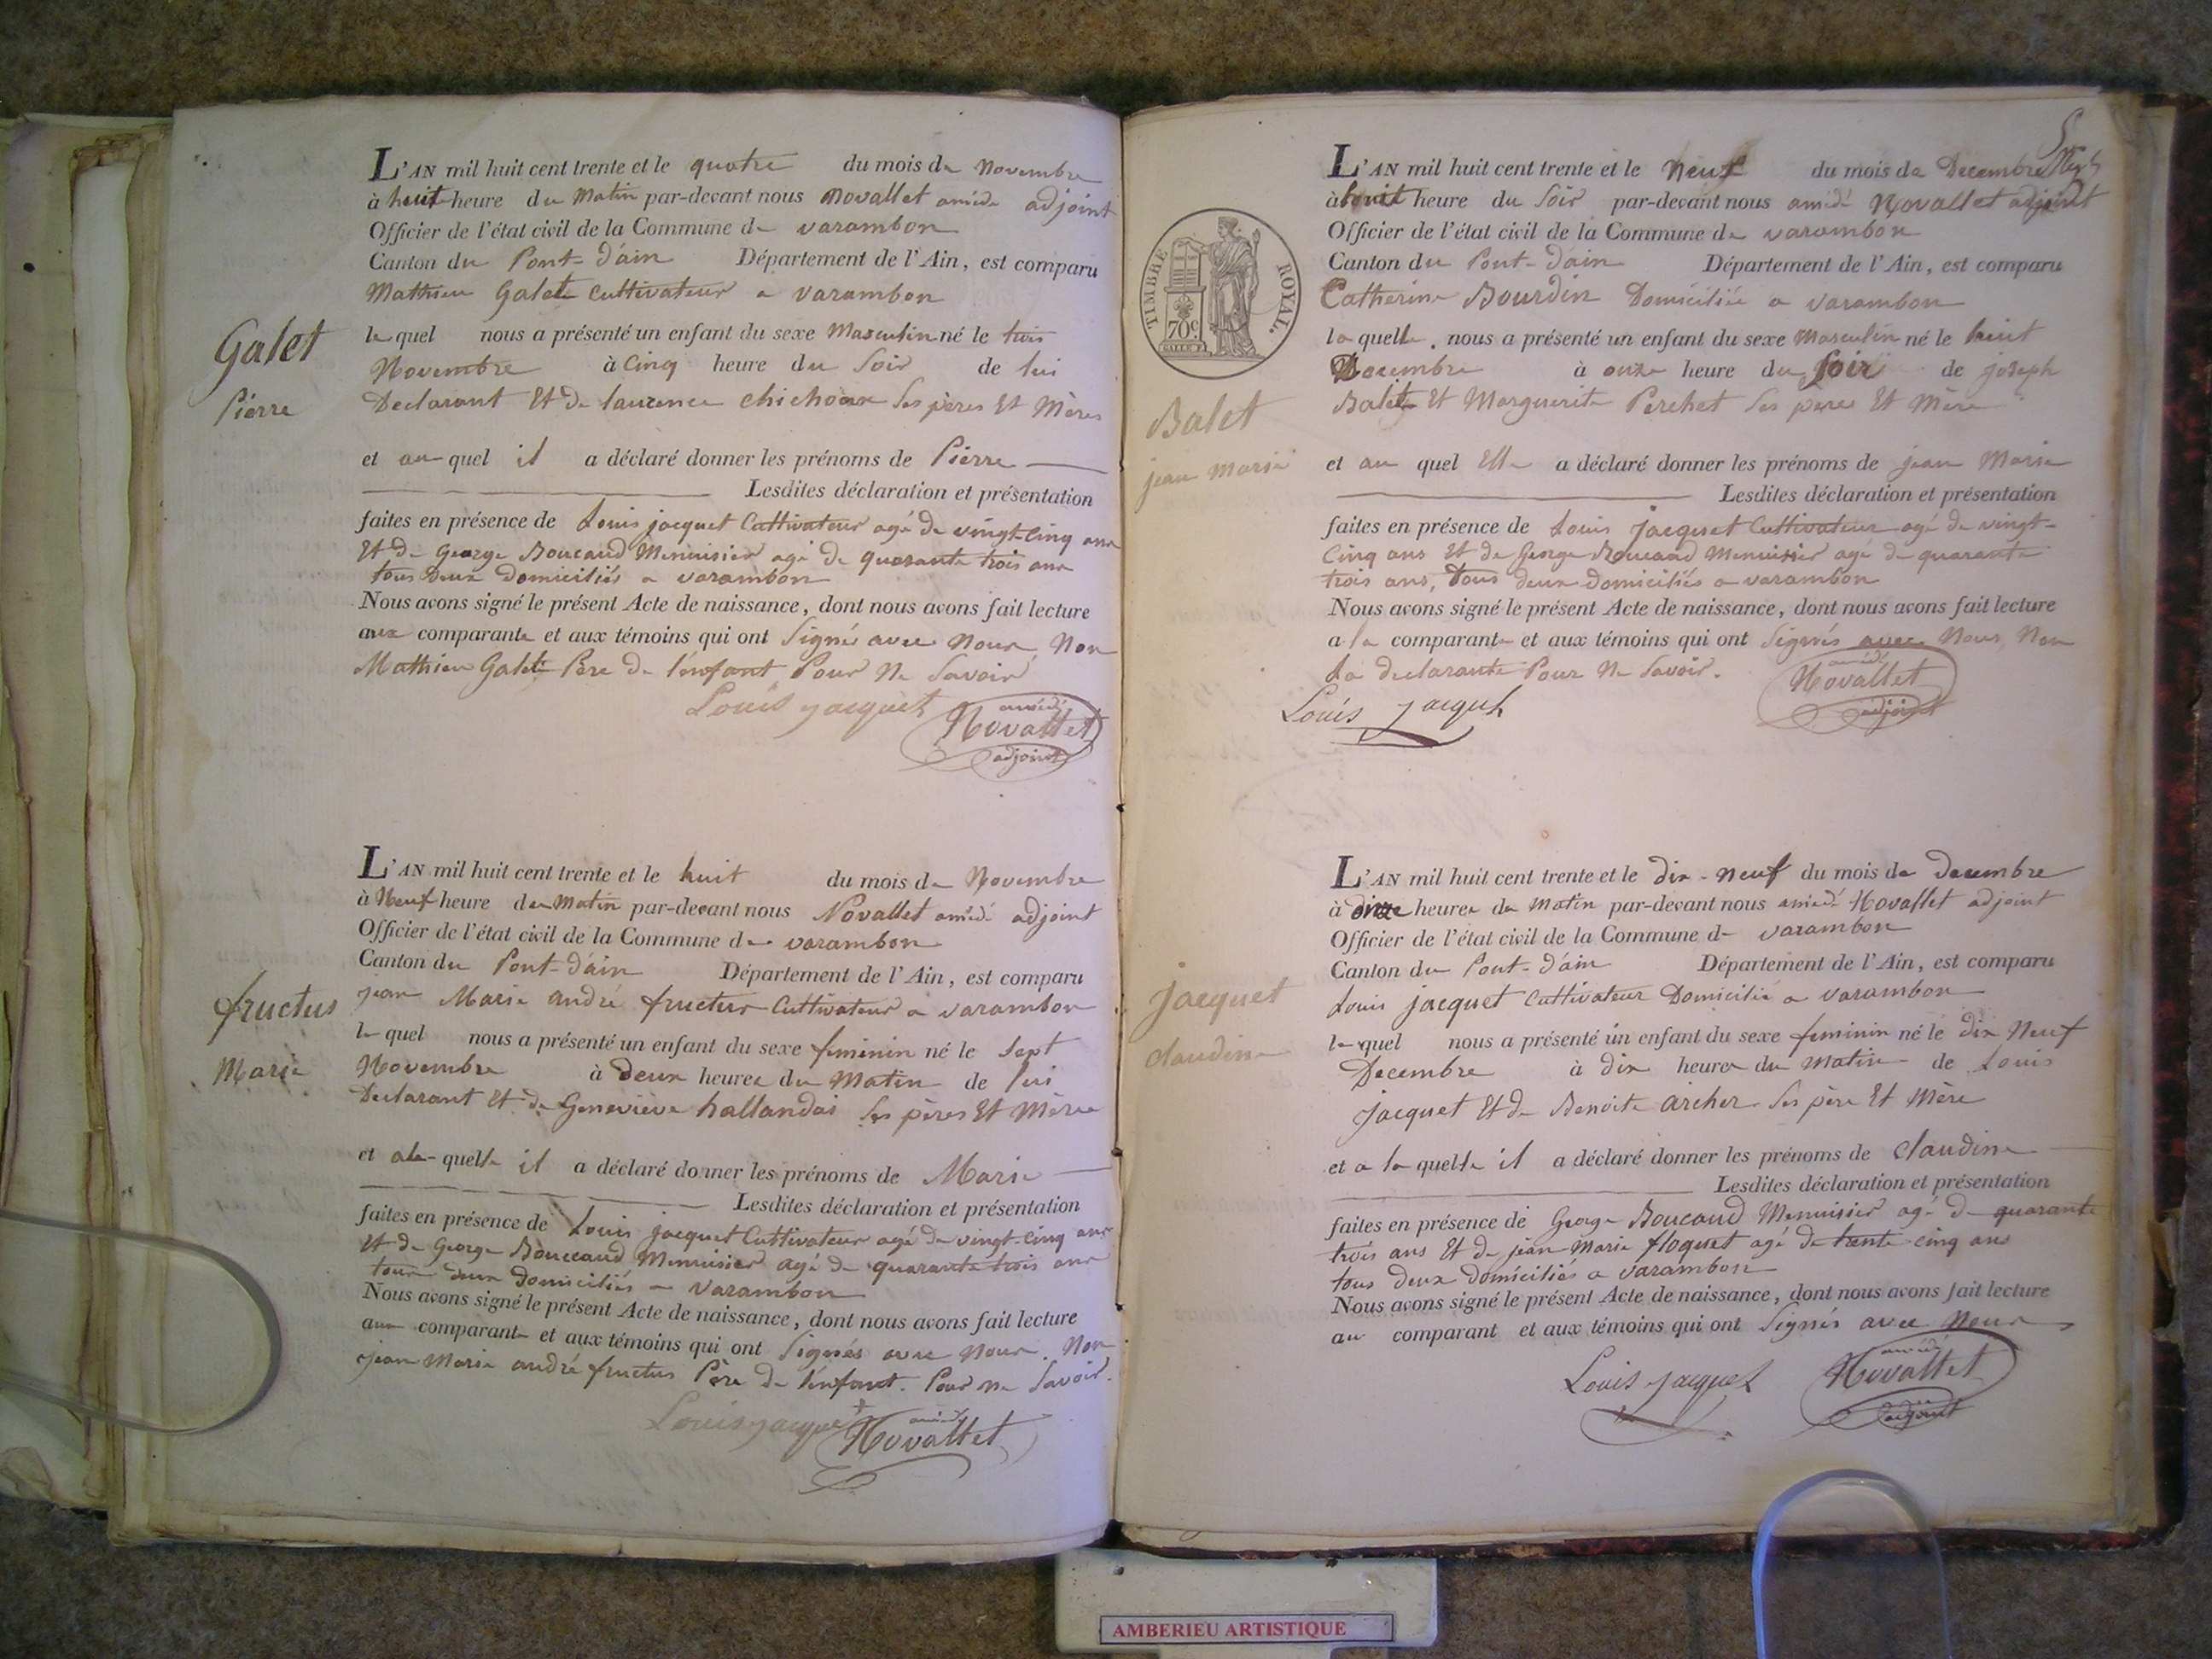 L'AN mil huit cent trente et le quatre du mois de Novembre
à huit heure du Matin par-devant nous Novallet amédé adjoint
Officier de l'état civil de la Commune de varambon
Canton du Pont-d'ain Département de l'Ain, est comparu
Mathieu Galet Cultivateur a varambon
Galet
Pierre
le quel nous a présenté un enfant du sexe Masculin né le trois
Novembre à Cinq heure du Soir de lui
Declarant Et de laurence chichoux Ses pères Et Mères
et au quel il a déclaré donner les prénoms de Pierre
Lesdites déclaration et présentation
faites en présence de Louis jacquet Cultivateur agé de vingt-Cinq ans
Et de George Boucaud Menuisier agé de quarante trois ans
tous Deux Domiciliés a varambon
Nous avons signé le présent Acte de naissance, dont nous avons fait lecture
aux comparants et aux témoins qui ont Signé avec Nous, Non
Mathieu Galet Père de l'enfant Pour Ne Savoir
Louis jacquet
amédé
Novallet
adjoint
L'AN mil huit cent trente et le huit du mois de Novembre
à Neuf heure du Matin par-devant nous Novallet amédé adjoint
Officier de l'état civil de la Commune de varambon
Canton du Pont-d'ain Département de l'Ain, est comparu
jean Marie andré fructus Cultivateur a varambon
fructus
Marie
le quel nous a présenté un enfant du sexe feminin né le Sept
Novembre à Deux heures du Matin de lui
Declarant Et de Geneviève hallandai Ses pères Et Mères
et a la quelle il a déclaré donner les prénoms de Marie
Lesdites déclaration et présentation
faites en présence de Louis jacquet Cultivateur agé de vingt-Cinq ans
Et de George Bouccaud Menuisier agé de quarante trois ans
tous deux Domiciliés a varambon
Nous avons signé le présent Acte de naissance, dont nous avons fait lecture
aux comparants et aux témoins qui ont Signés avec Nous. Non
jean Marie andré fructus Père de l'enfant. Pour ne Savoir.
Louis jacquet
amédé
Novallet
L'AN mil huit cent trente et le Neuf du mois de Decembre
à huit heure du Soir par-devant nous amédé Novallet adjoint
Officier de l'état civil de la Commune de varambon
Canton du Pont-d'ain Département de l'Ain, est comparu
Catherine Bourdin Domiciliée a varambon
TIMBRE ROYAL.
70c
la quelle nous a présenté un enfant du sexe Masculin né le huit
Decembre à onze heure du Soir de joseph
Balet Et Marguerite Perchet Ses pères Et Mère
Balet
jean Marie
et au quel Elle a déclaré donner les prénoms de jean Marie
Lesdites déclaration et présentation
faites en présence de Louis jacquet Cultivateur agé de vingt-
Cinq ans Et de George Boucaud Menuisier agé de quarante
trois ans, tous deux Domiciliés a varambon
Nous avons signé le présent Acte de naissance, dont nous avons fait lecture
a la comparante et aux témoins qui ont Signés avec Nous, Non
La declarante Pour Ne Savoir.
Louis jacquet
amédé
Novallet
adjoint
L'AN mil huit cent trente et le dix-Neuf du mois de Decembre
à onze heures du Matin par-devant nous amédé Novallet adjoint
Officier de l'état civil de la Commune de varambon
Canton du Pont-d'ain Département de l'Ain, est comparu
Louis jacquet Cultivateur Domicilié a varambon
jacquet
claudine
le quel nous a présenté un enfant du sexe feminin né le dix Neuf
Decembre à dix heures du Matin de Louis
jacquet Et de Benoite archer Ses père Et Mère
et a la quelle il a déclaré donner les prénoms de claudine
Lesdites déclaration et présentation
faites en présence de George Boucaud Menuisier agé de quarante
trois ans Et de jean-Marie floquet agé de trente cinq ans
tous deux domiciliés a varambon
Nous avons signé le présent Acte de naissance, dont nous avons fait lecture
au comparant et aux témoins qui ont Signés avec Nous
Louis jacquet
amédé
Novallet
adjoint
AMBERIEU ARTISTIQUE